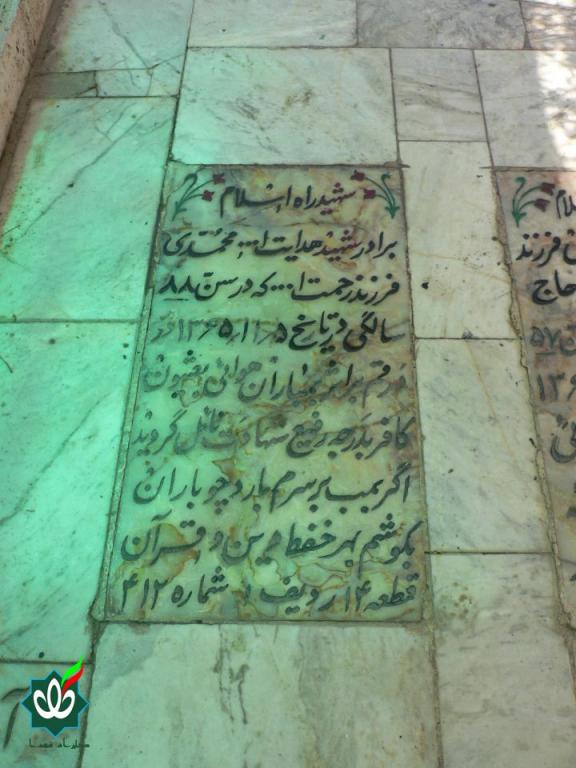 شهید راه اسلام
برادر شهید هدایت ا... محمدی
فرزند رحمت ا... که در سن ۸۸
سالگی در تاریخ ۱۳۶۵/۱۱/۵ در
قم بر اثر بمباران هوائی بعثیون
کافر بدرجه رفیع شهادت نائل گردید
اگر بمب بر سرم بارد چو باران
بکوشم بهر حفظ دین و قرآن
قطعه ۱۴ ردیف ۱ شماره ۴۱۲
لام
فرزند
حاج
۵۷
۱۳۶